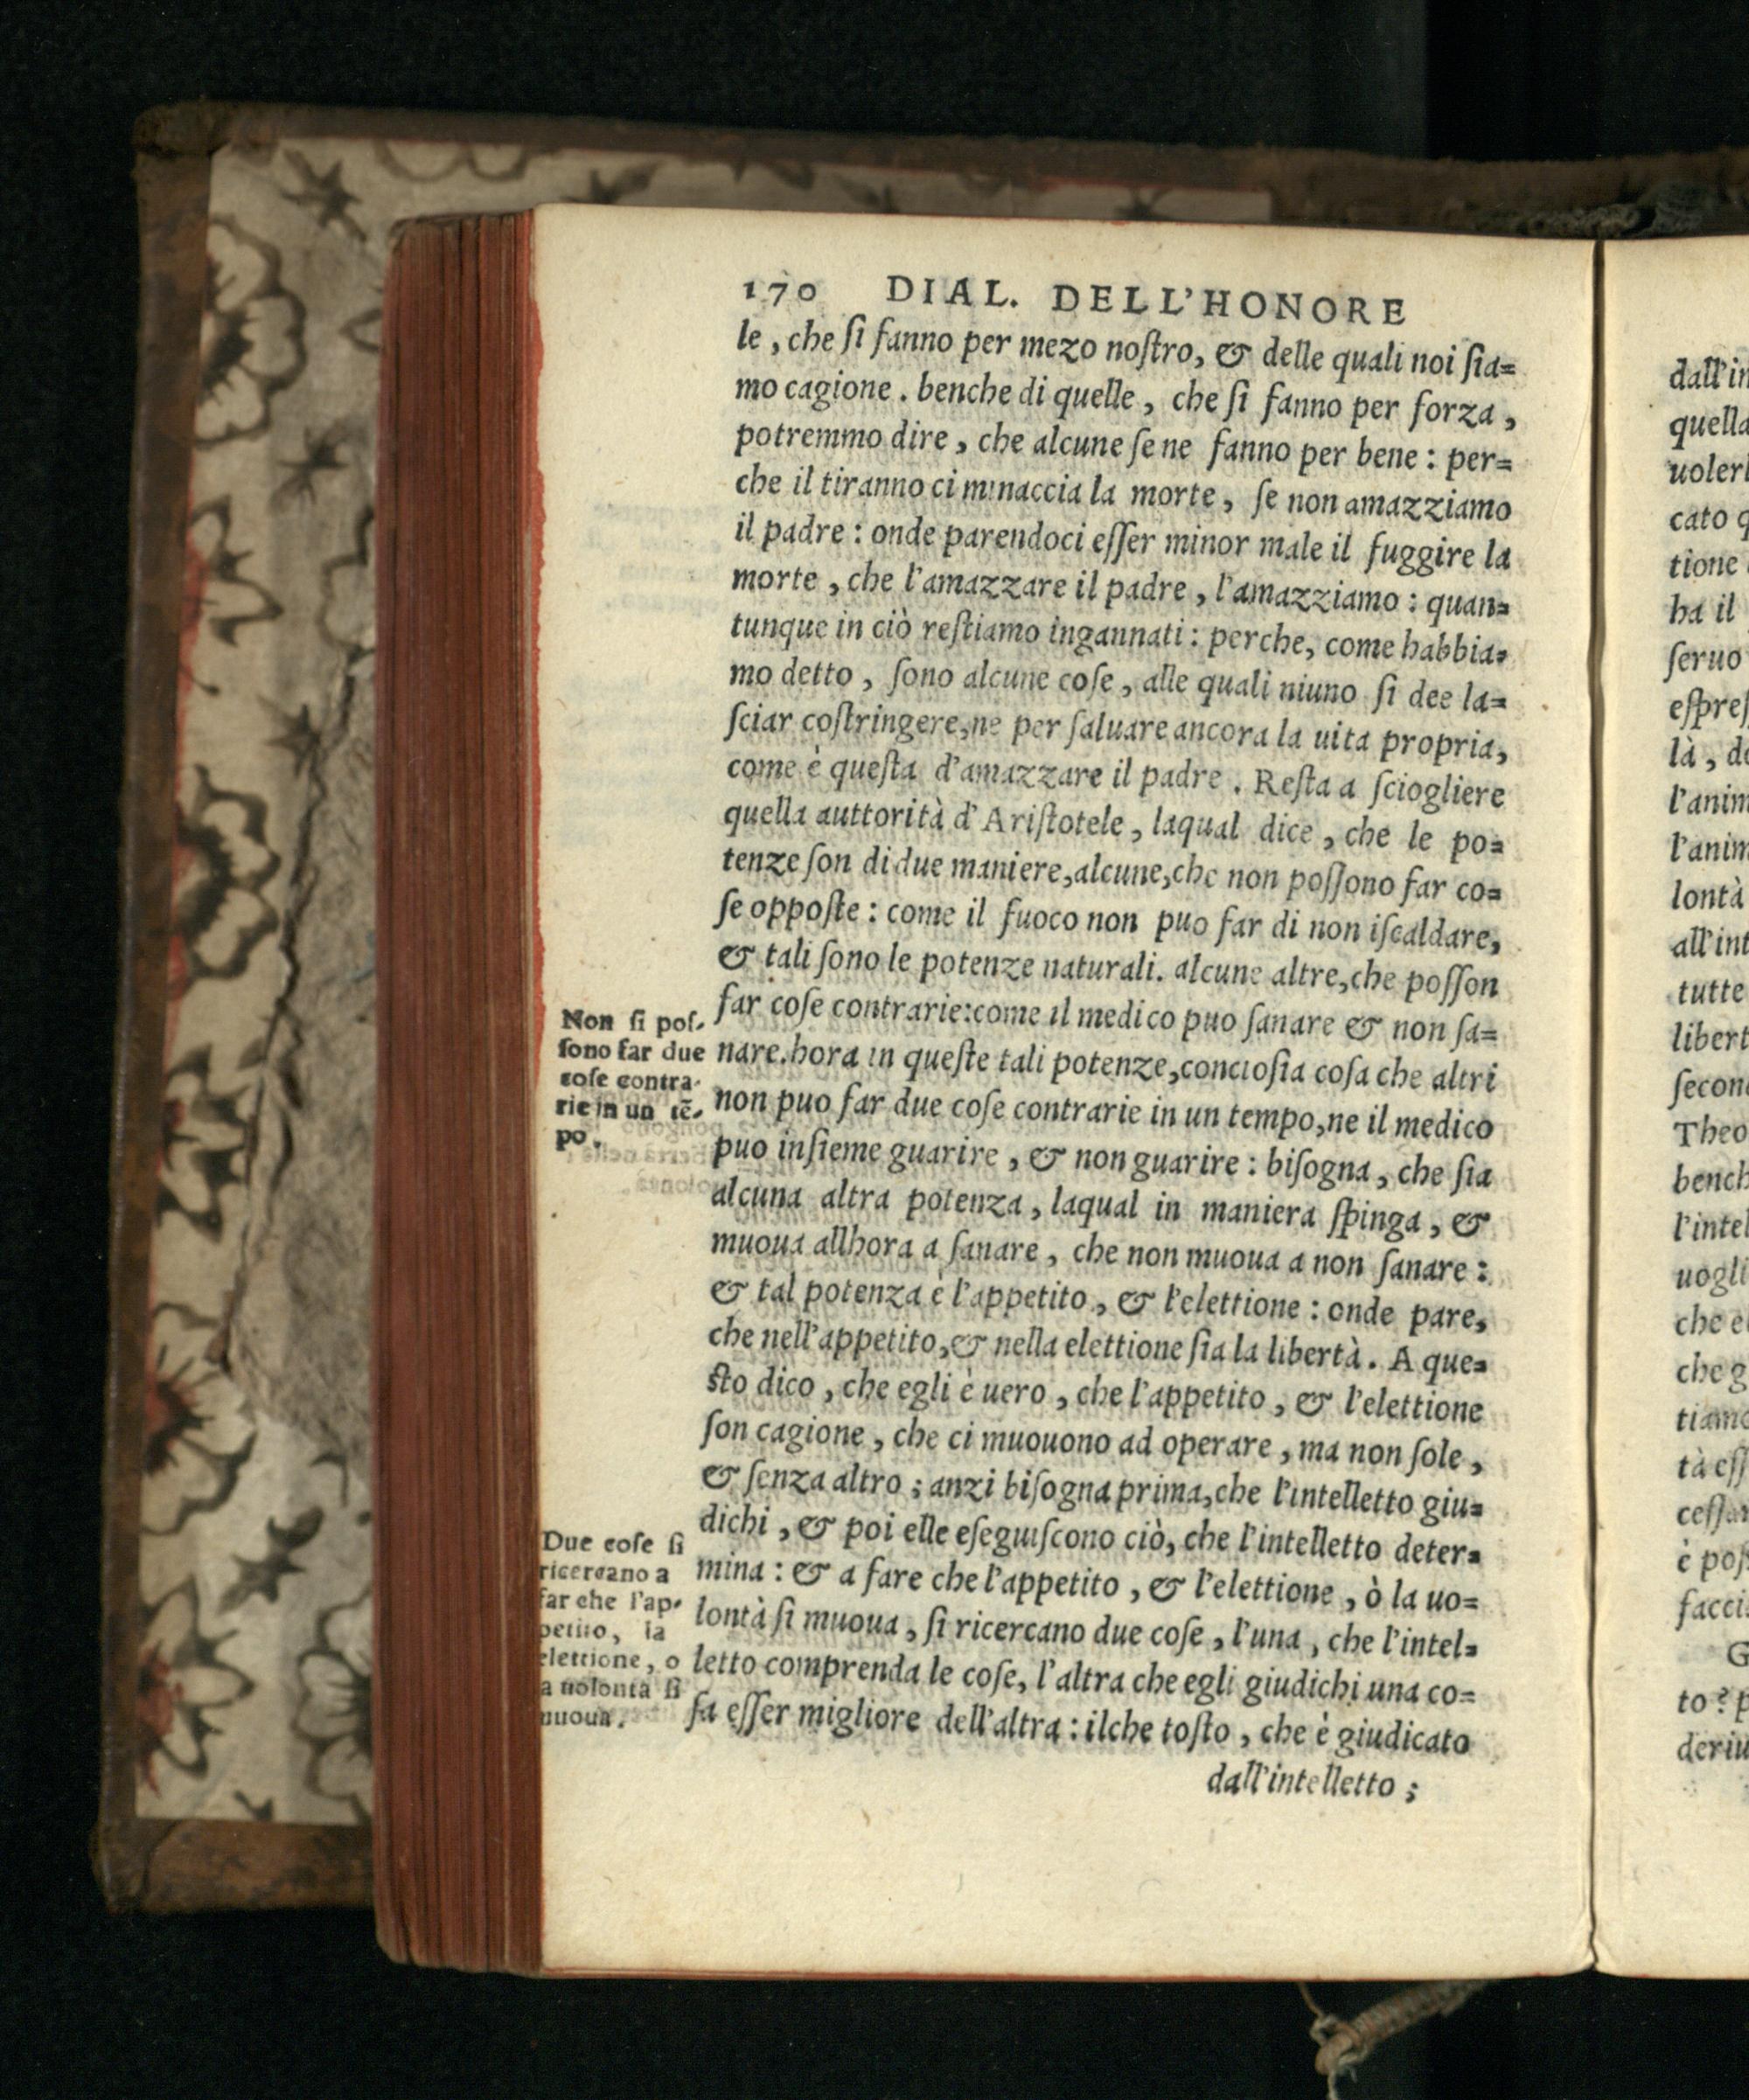 170 DIAL. DELL'HONORE
le, che ſi fanno per mezo noſtro, & delle quali noi ſia=
mo cagione. benche di quelle, che ſi fanno per forza,
potremmo dire, che alcune ſe ne fanno per bene: per=
che il tiranno ci minaccia la morte, ſe non amazziamo
il padre: onde parendoci eſſer minor male il fuggire la
morte, che l'amazzare il padre, l'amazziamo: quan=
tunque in ciò reſtiamo ingannati: perche, come habbia=
mo detto, ſono alcune coſe, alle quali niuno ſi dee la=
ſciar coſtringere, ne per ſaluare ancora la uita propria,
come è queſta d'amazzare il padre. Reſta a ſciogliere
quella auttorità d'Ariſtotele, laqual dice, che le po=
tenze ſon di due maniere, alcune, che non poſſono far co=
ſe oppoſte: come il fuoco non puo far di non iſcaldare,
& tali ſono le potenze naturali. alcune altre, che poſſon
far coſe contrarie: come il medico puo ſanare & non ſa=
nare. hora in queſte tali potenze, concioſia coſa che altri
non puo far due coſe contrarie in un tempo, ne il medico
puo inſieme guarire, & non guarire: biſogna, che ſia
alcuna altra potenza, laqual in maniera ſpinga, &
muoua allhora a ſanare, che non muoua a non ſanare:
& tal potenza è l'appetito, & l'elettione: onde pare,
che nell'appetito, & nella elettione ſia la libertà. A que=
ſto dico, che egli è uero, che l'appetito, & l'elettione
ſon cagione, che ci muouono ad operare, ma non ſole,
& ſenza altro; anzi biſogna prima, che l'intelletto giu=
dichi, & poi elle eſeguiſcono ciò, che l'intelletto deter=
mina: & a fare che l'appetito, & l'elettione, ò la uo=
lontà ſi muoua, ſi ricercano due coſe, l'una, che l'intel=
letto comprenda le coſe, l'altra che egli giudichi una co=
ſa eſſer migliore dell'altra: ilche toſto, che è giudicato
dall'intelletto;
Non ſi poſ-
ſono far due
coſe contra-
rie in un tē-
po.
Due coſe ſi
ricercano a
far che l'ap-
petito, la
elettione, o
a uolonta ſi
muoua.
dall'in
quella
uolerl
cato q
tione
ha il
ſeruo
eſpreſ
là, de
l'anim
l'anim
lontà
all'int
tutte
libert
ſecon
Theo
bench
l'intel
uogli
che e
che g
tiamo
tà eſſ
ceſſar
è poſ
facci
G
to? p
deriu